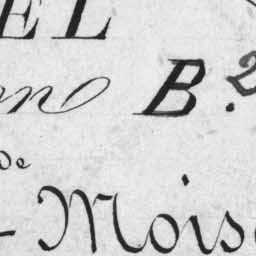 EL
en B. 2
De
- Mois